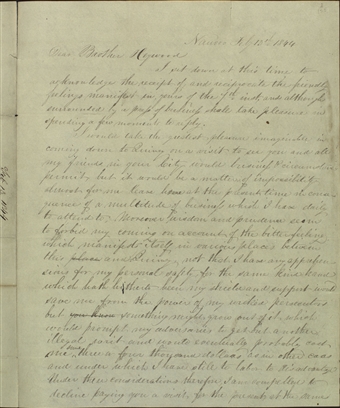 Nauvoo Feb 13th 1844
Dear Brother Heywood
I sit down at this time to
acknowledge the receipt of and reciprocate the friendly
feelings manifest in yours of the 7th inst, and although
surrounded by a press of business shall take pleasure in
spending a few moments to reply.
I would take the greatest pleasure imaginable, in
coming down to Quincy on a visit to see you and all
my friends in your City would business & circumstances
permit, but it would be a matter of impossibility
almost for me to leave home at the present time in conse-
quence of a multitude of business which I have daily
to attend to. Moreover wisdom and prudence seem
to forbid my coming on account of the bitter feeling
which manifests itself in various places between
this and Quincy, not that I have any apprehen-
sions for my personal safety for the same kind hand
which hath hitherto been my shield and support would
save me from the power of my wicked persecutors
but something might grow out of it which
would prompt my adversaries to get out another
illegal writ and would eventually probably cost
me three or four thousand dollars as in other cases
and under which I have still to labor to disadvantage
Under these considerations therefore I am compelled to
decline paying you a visit for the present at the same